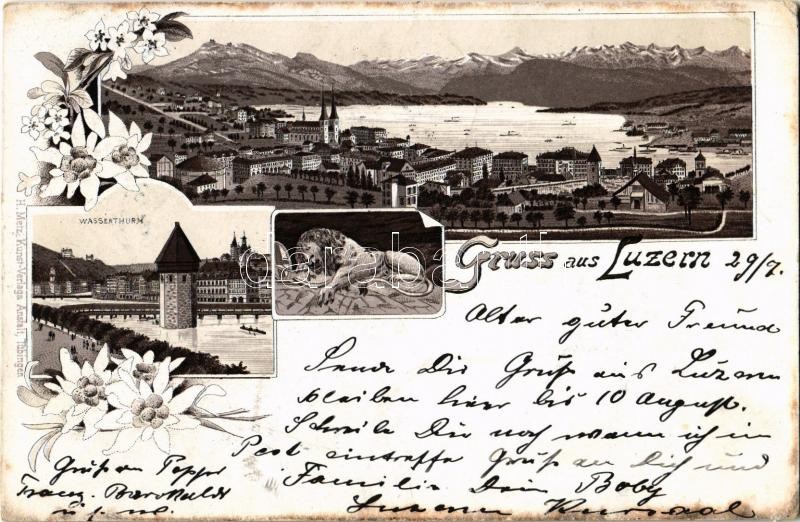 WASSERTHURM
Gruss aus Luzern 29/7.
H. Metz, Kunst-Verlags Anstalt, Tübingen
darabanth
Alter guter Freund
Sende Dir Grüße aus Luzern
bleiben hier bis 10 August.
Schreibe Dir noch wann ich in
Pest eintreffe Grüße an Dich und
Familie Dein Boby
Luzern Kursaal
Grüße an
Franz.
u. s. w.